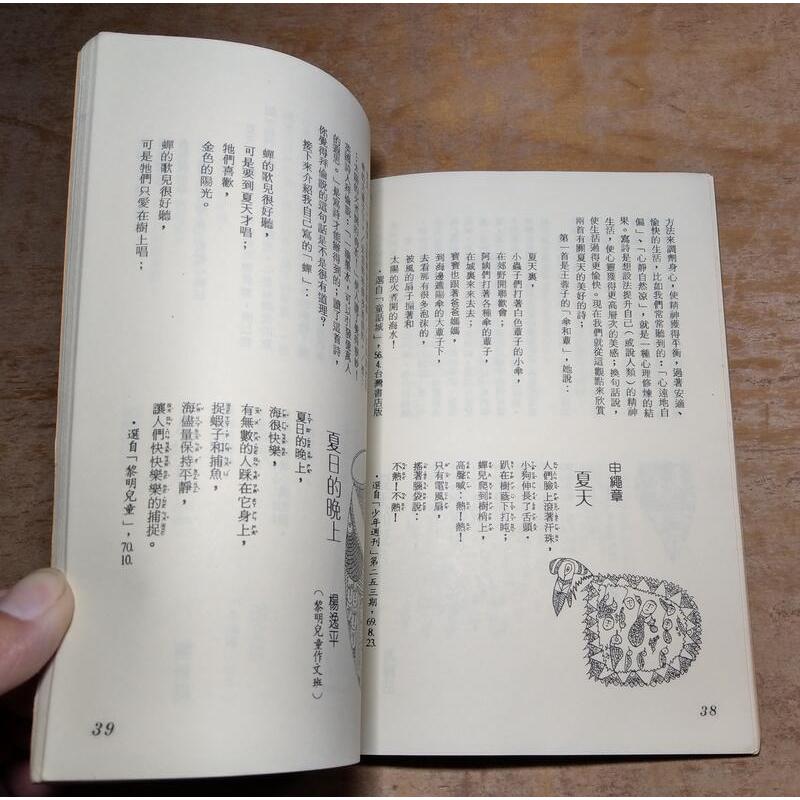 方法來調劑身心，使精神獲得平衡，過著安適、
愉快的生活，比如我們常常聽到的：「心遠地自
偏」、「心靜自然凉」，就是一種心理修煉的結
果。寫詩是想設法提升自己（或說人類）的精神
生活，使心靈獲得更高層次的美感；換句話說，
使生活過得更愉快。現在我們就從這觀點來欣賞
兩首有關夏天的美好的詩；
第一首是王蓉子的「傘和蕈」，她說：
夏天裏，
小蟲子們打著白色蕈子的小傘，
在郊野開聯歡會；
阿姨們打著各種傘的蕈子，
在城裏來來去去；
寶寶也跟著爸爸媽媽，
到海邊遮陽傘的大蕈子下，
去看那有很多泡沫的，
被風的扇子搧著和
太陽的火煮開的海水！
．選自「童話城」，56.4.台灣書店版
申繩葦
夏天
人們臉上滾著汗珠，
小狗伸長了舌頭，
趴在樹蔭下打盹；
蟬兒爬到樹梢上，
高聲喊：熱！熱！
只有電風扇，
搖著腦袋說：
不熱！不熱！
．選自「少年週刊」第二五三期，69.8.23.
38
英國詩人拜倫說：一滴墨水，可以引發億萬人
的遐思。是寫詩才能辦得到的；讀了這首詩，
你覺得拜倫說的這句話是不是很有道理？
接下來介紹我自己寫的「蟬」：
蟬的歌兒很好聽，
可是要到夏天才唱；
牠們喜歡，
金色的陽光。
蟬的歌兒很好聽，
可是牠們只愛在樹上唱；
夏日的晚上
楊逸平
（黎明兒童作文班）
夏日的晚上，
海很快樂，
有無數的人踩在它身上，
捉蝦子和捕魚，
海儘量保持平靜，
讓人們快快樂樂的捕捉。
．選自「黎明兒童」，70.10.
39